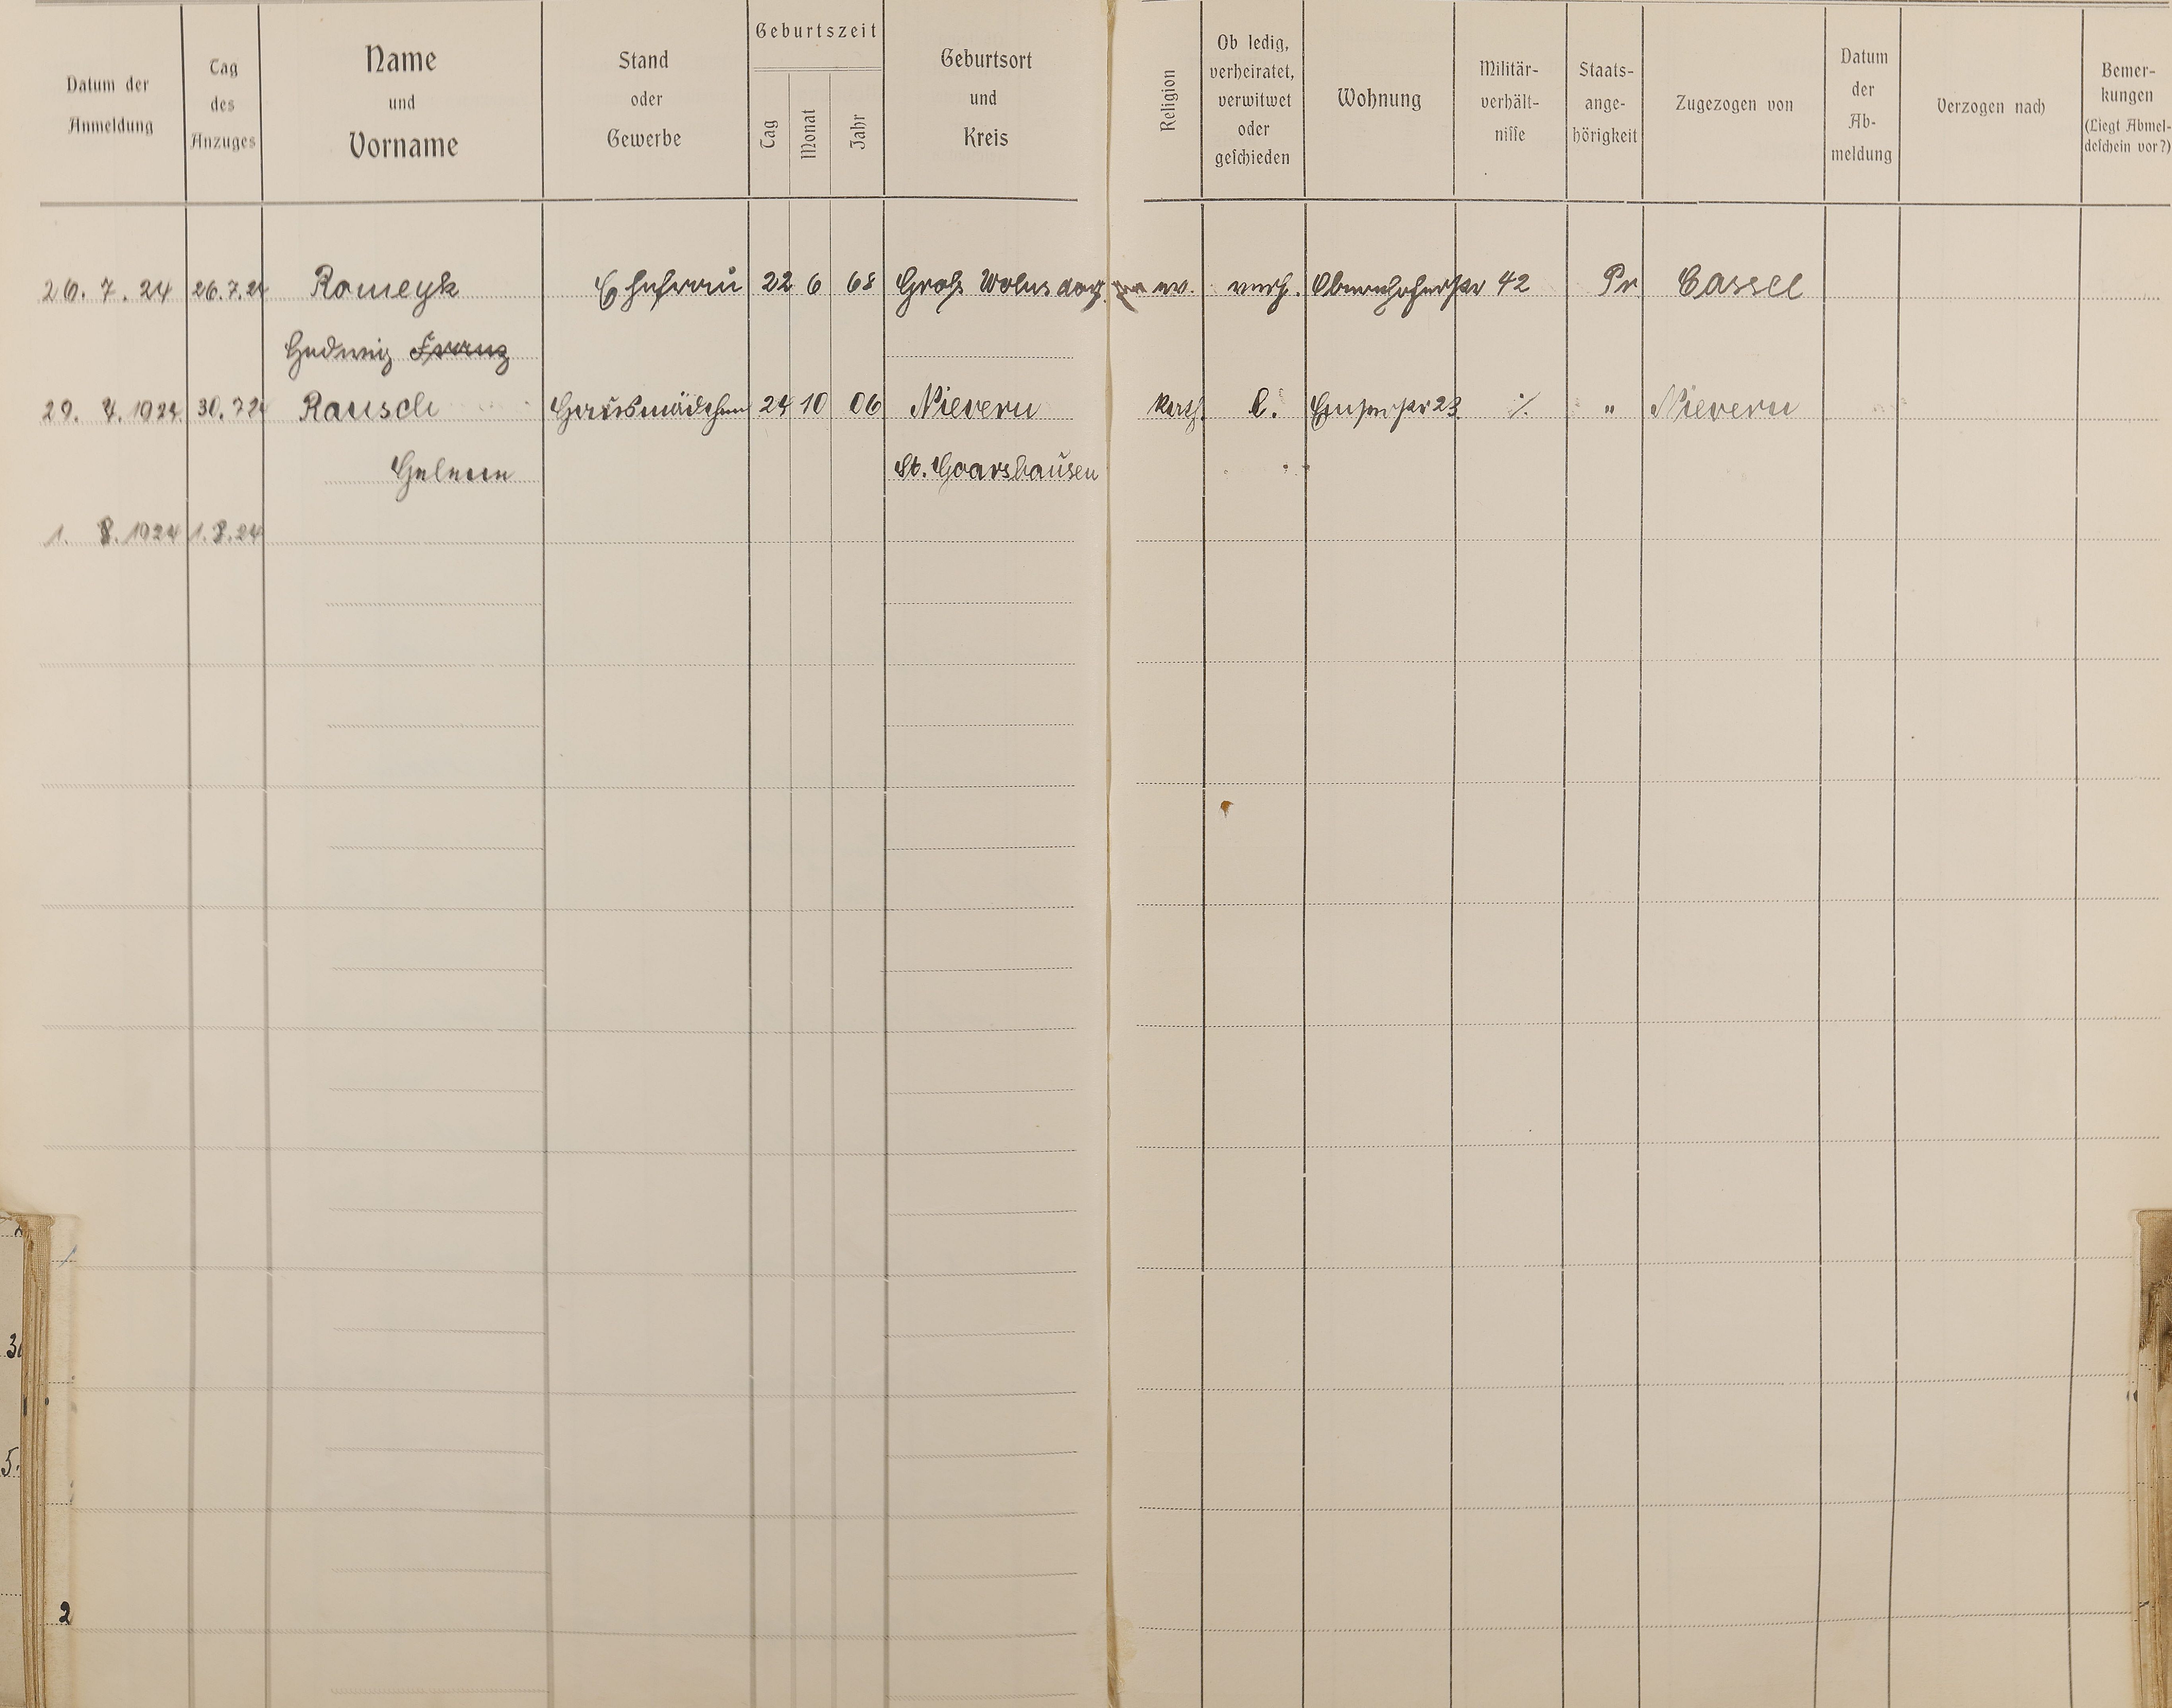 Datum der Anmeldung
Tag des Anzuges
Name und Vorname
Stand oder Gewerbe
Geburtszeit
Tag Monat Jahr
Geburtsort und Kreis
Religion
Ob ledig, verheiratet, verwitwet oder geschieden
Wohnung
Militär-verhält-nisse
Staats-ange-hörigkeit
Zugezogen von
Datum der Ab-meldung
Verzogen nach
Bemer-kungen (Liegt Abmel-deschein vor?)
26. 7. 24 26.7.24 Romeyk Ehefrau 22 6 68 Groß Wohnsdorf ev. verh. Obernhoferstr 42 Pr Cassel
Hedwig Franz
29. 7. 1924 30.7 24 Rausch Hausmädchen 24 10 06 Nievern kath l. Emserstr 23 ٪ " Nievern
Helene St. Goarshausen
1. 8. 1924 1.8.24
2